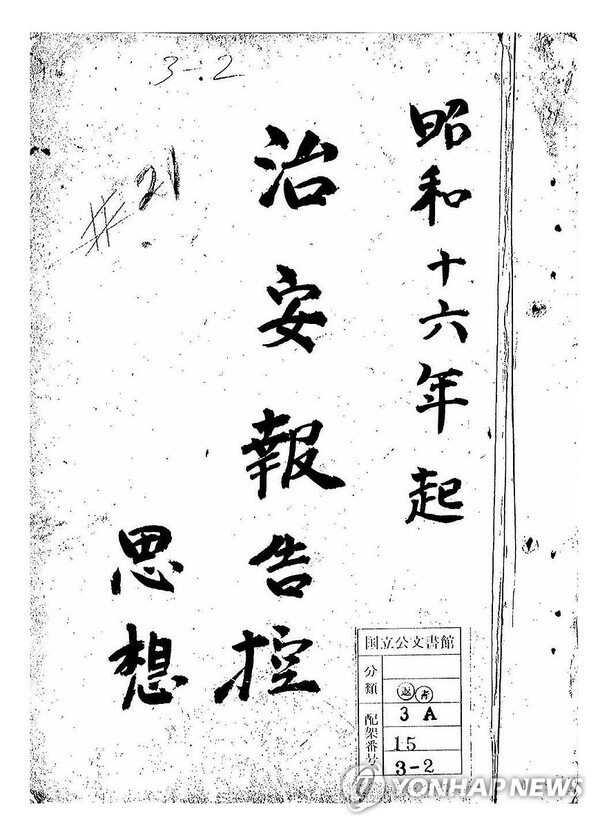 3-2
#21
昭和十六年起
治安報告控
思想
国立公文書館
分類
返赤
配架番号
3A
15
3-2
YONHAP NEWS